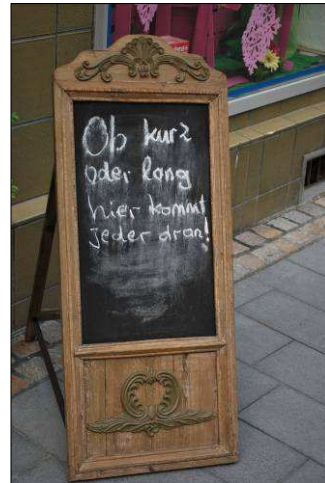 Ob kurz
oder lang
hier kommt
jeder dran!